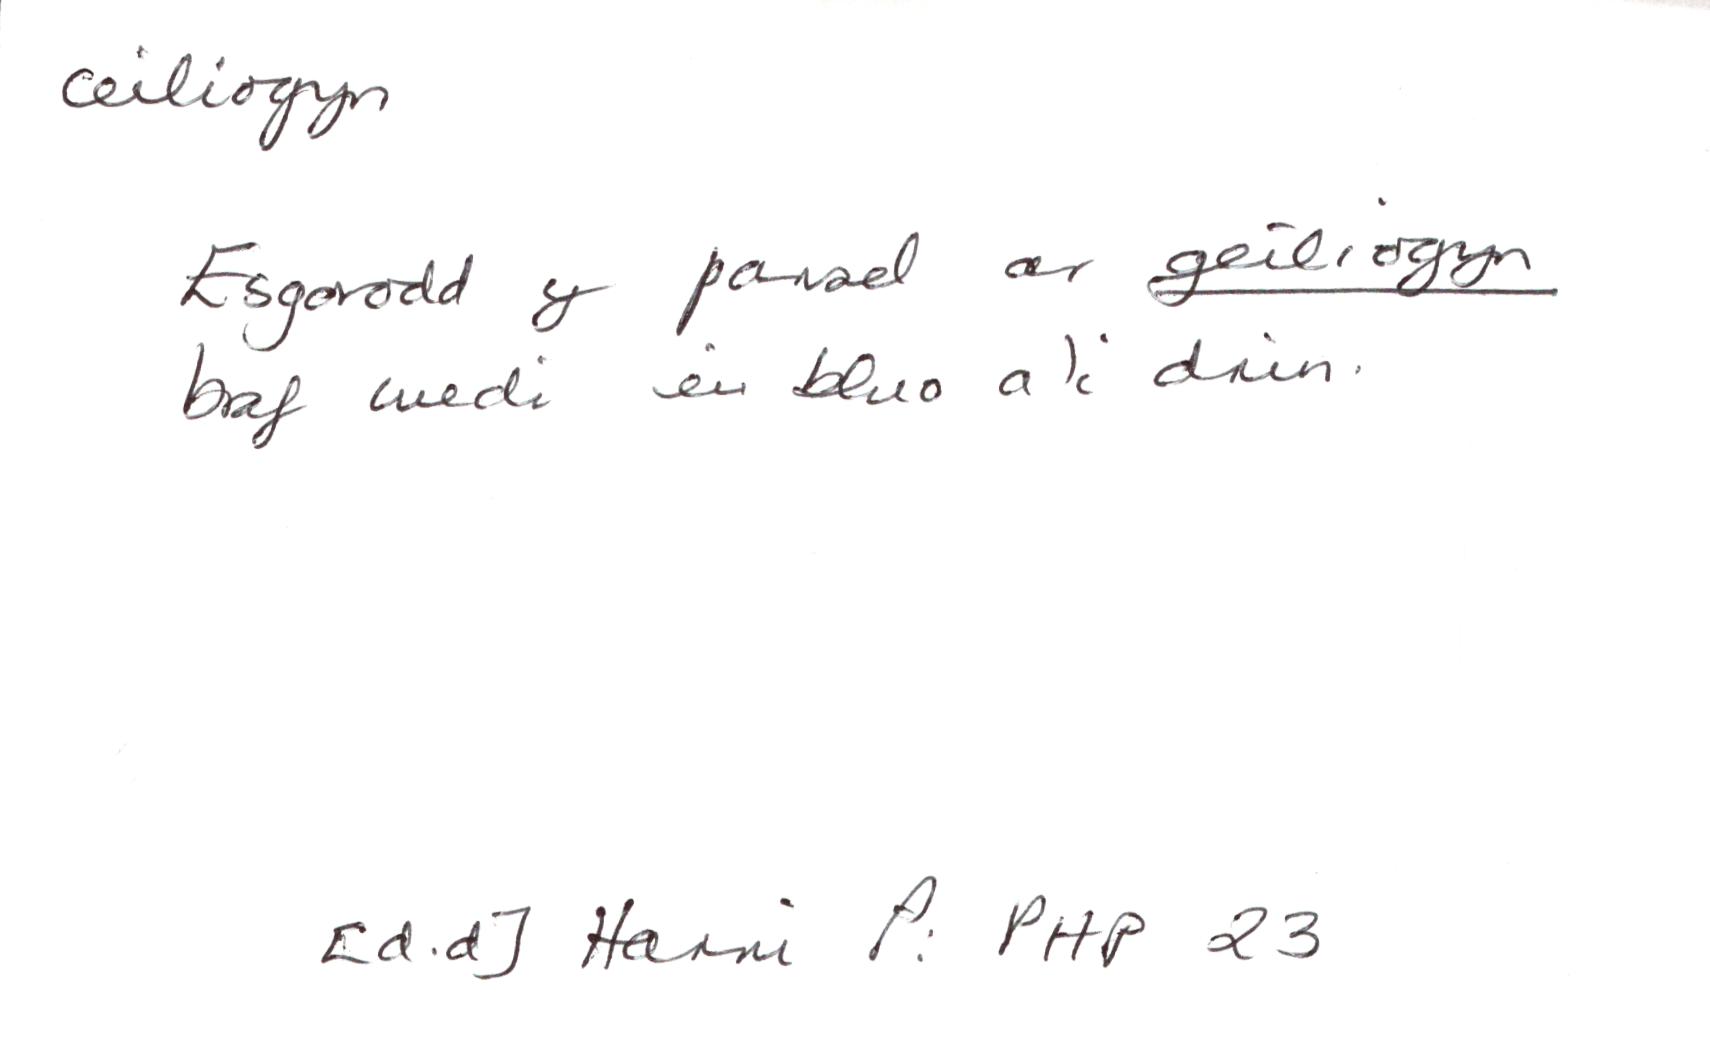 ceiliogyn
Esgorodd y parsel ar geiliogyn
braf wedi ei bluo a'i drin.
[d.d] Harri P: PHP 23